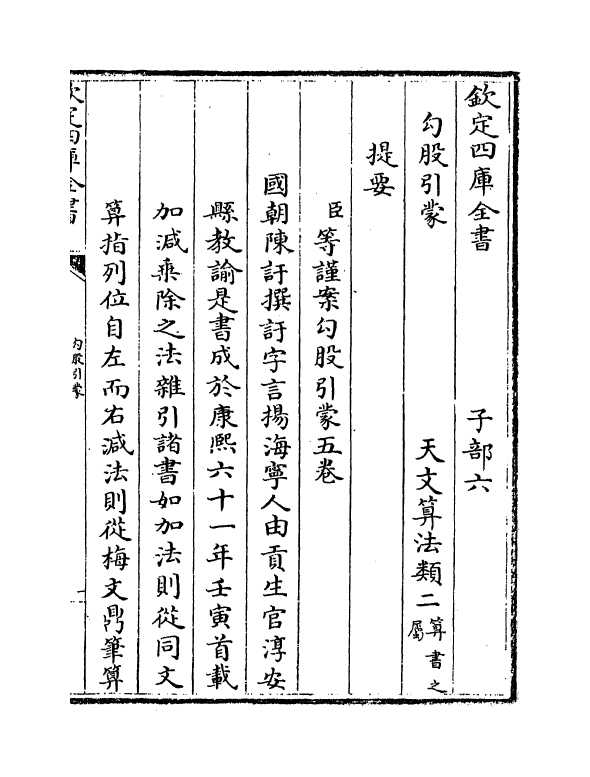 欽定四庫全書　子部六
勾股引蒙　天文算法類二算書之屬
提要
臣等謹案勾股引蒙五卷
國朝陳訏撰訏字言揚海寧人由貢生官淳安
縣教諭是書成於康熙六十一年壬寅首載
加減乗除之法雜引諸書如加法則從同文
算指列位自左而右減法則從梅文鼎筆算
欽定四庫全書
勾股引蒙
一